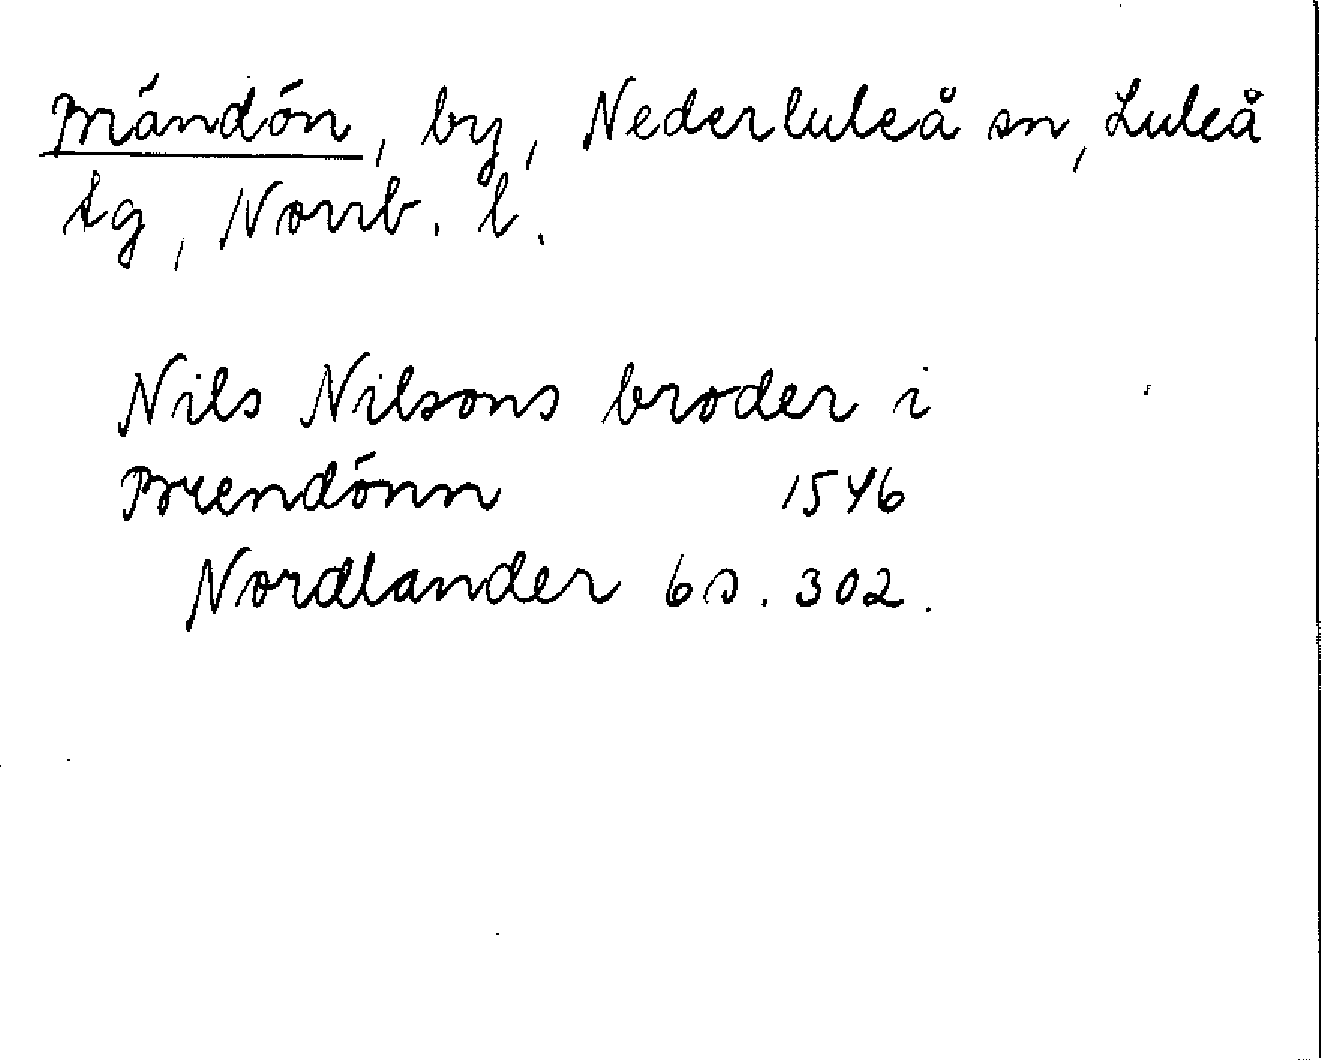 Brändön, by, Nederluleå sn, Luleå
tg, Norrb. l.
Nils Nilsons broder i
Brendönn 1546
Nordlander 6 s. 302.